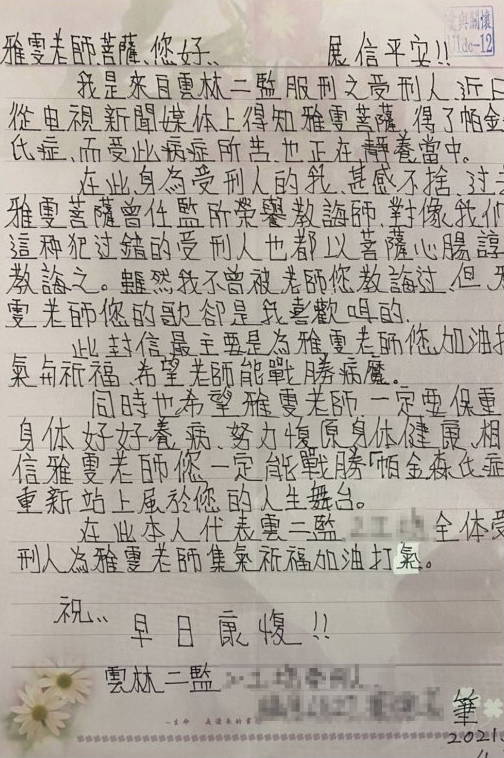 愛與關懷
雅雯老師菩薩、您好、 展信平安!!
我是來自雲林二監服刑之受刑人、近日
從电視新聞媒体上得知雅雯菩薩、得了帕金
氏症、而受此病症所苦、也正在靜養當中。
在此、身為受刑人的我、甚感不捨、过去
雅雯菩薩曾任監所榮譽教誨師、對像我们
這种犯过錯的受刑人也都以菩薩心腸諄
教誨之。雖然我不曾被老師您教誨过、但
雯老師您的歌卻是我喜歡唱的.
此封信最主要是為雅雯老師您、加油打
氣与祈福、希望老師能戰勝病魔。
同時也希望雅雯老師、一定要保重
身体好好養病、努力愎原身体健康、相
信雅雯老師您一定能戰勝「帕金森氏症
重新站上属於您的人生舞台。
在此本人代表雲二監 全体受
刑人為雅雯老師集氣祈福加油打氣。
祝、、
早日康愎!!
雲林二監
筆
2021.